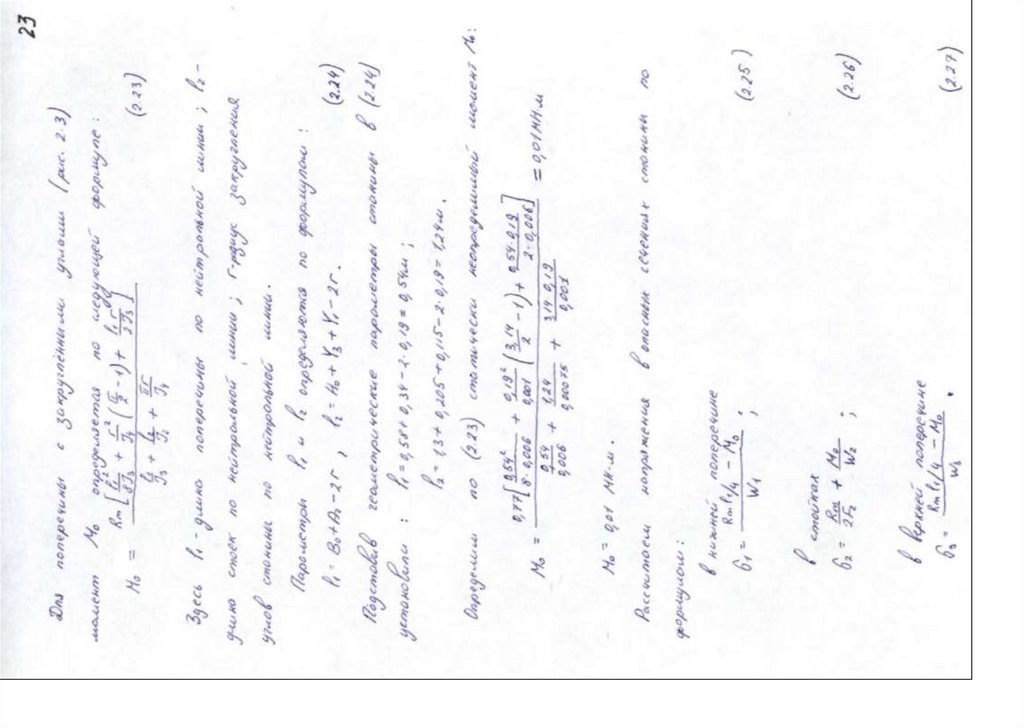 23
Для поперечины с закруглёнными углами (рис. 2.3)
момент M₀ определяется по следующей формуле:
M₀ = Rm[l₁²/8J₃ + r²/J₄ (π/2 - 1) + l₁r/2J₃] / (l₁/J₃ + l₂/J₂ + πr/J₄) (2.23)
Здесь l₁ - длина поперечины по нейтральной линии; l₂ -
длина стоек по нейтральной линии; r-радиус закругления
углов станины по нейтральной линии.
Параметры l₁ и l₂ определяются по формулам:
l₁ = B₀ + A₂ - 2r, l₂ = H₀ + Y₃ + Y₁ - 2r. (2.24)
Подставив геометрические параметры станины в (2.24)
установили: l₁ = 0,58 + 0,34 - 2·0,19 = 0,54м;
l₂ = 1,3 + 0,205 + 0,115 - 2·0,19 = 1,24м.
Определим по (2.23) статически неопределимый момент M₀:
M₀ = 0,77[0,54²/8·0,006 + 0,19²/0,001 (3,14/2 - 1) + 0,54·0,19/2·0,006] / (0,54/0,006 + 1,24/0,00075 + 3,14·0,19/0,001) = 0,01МН·м
M₀ = 0,01 МН·м.
Рассчитаем напряжения в опасных сечениях станины по
формулам:
в нижней поперечине
σ₁ = (Rm l₁/4 - M₀)/W₁; (2.25)
в стойках
σ₂ = Rm/2F₂ + M₀/W₂; (2.26)
в верхней поперечине
σ₃ = (Rm l₁/4 - M₀)/W₃. (2.27)